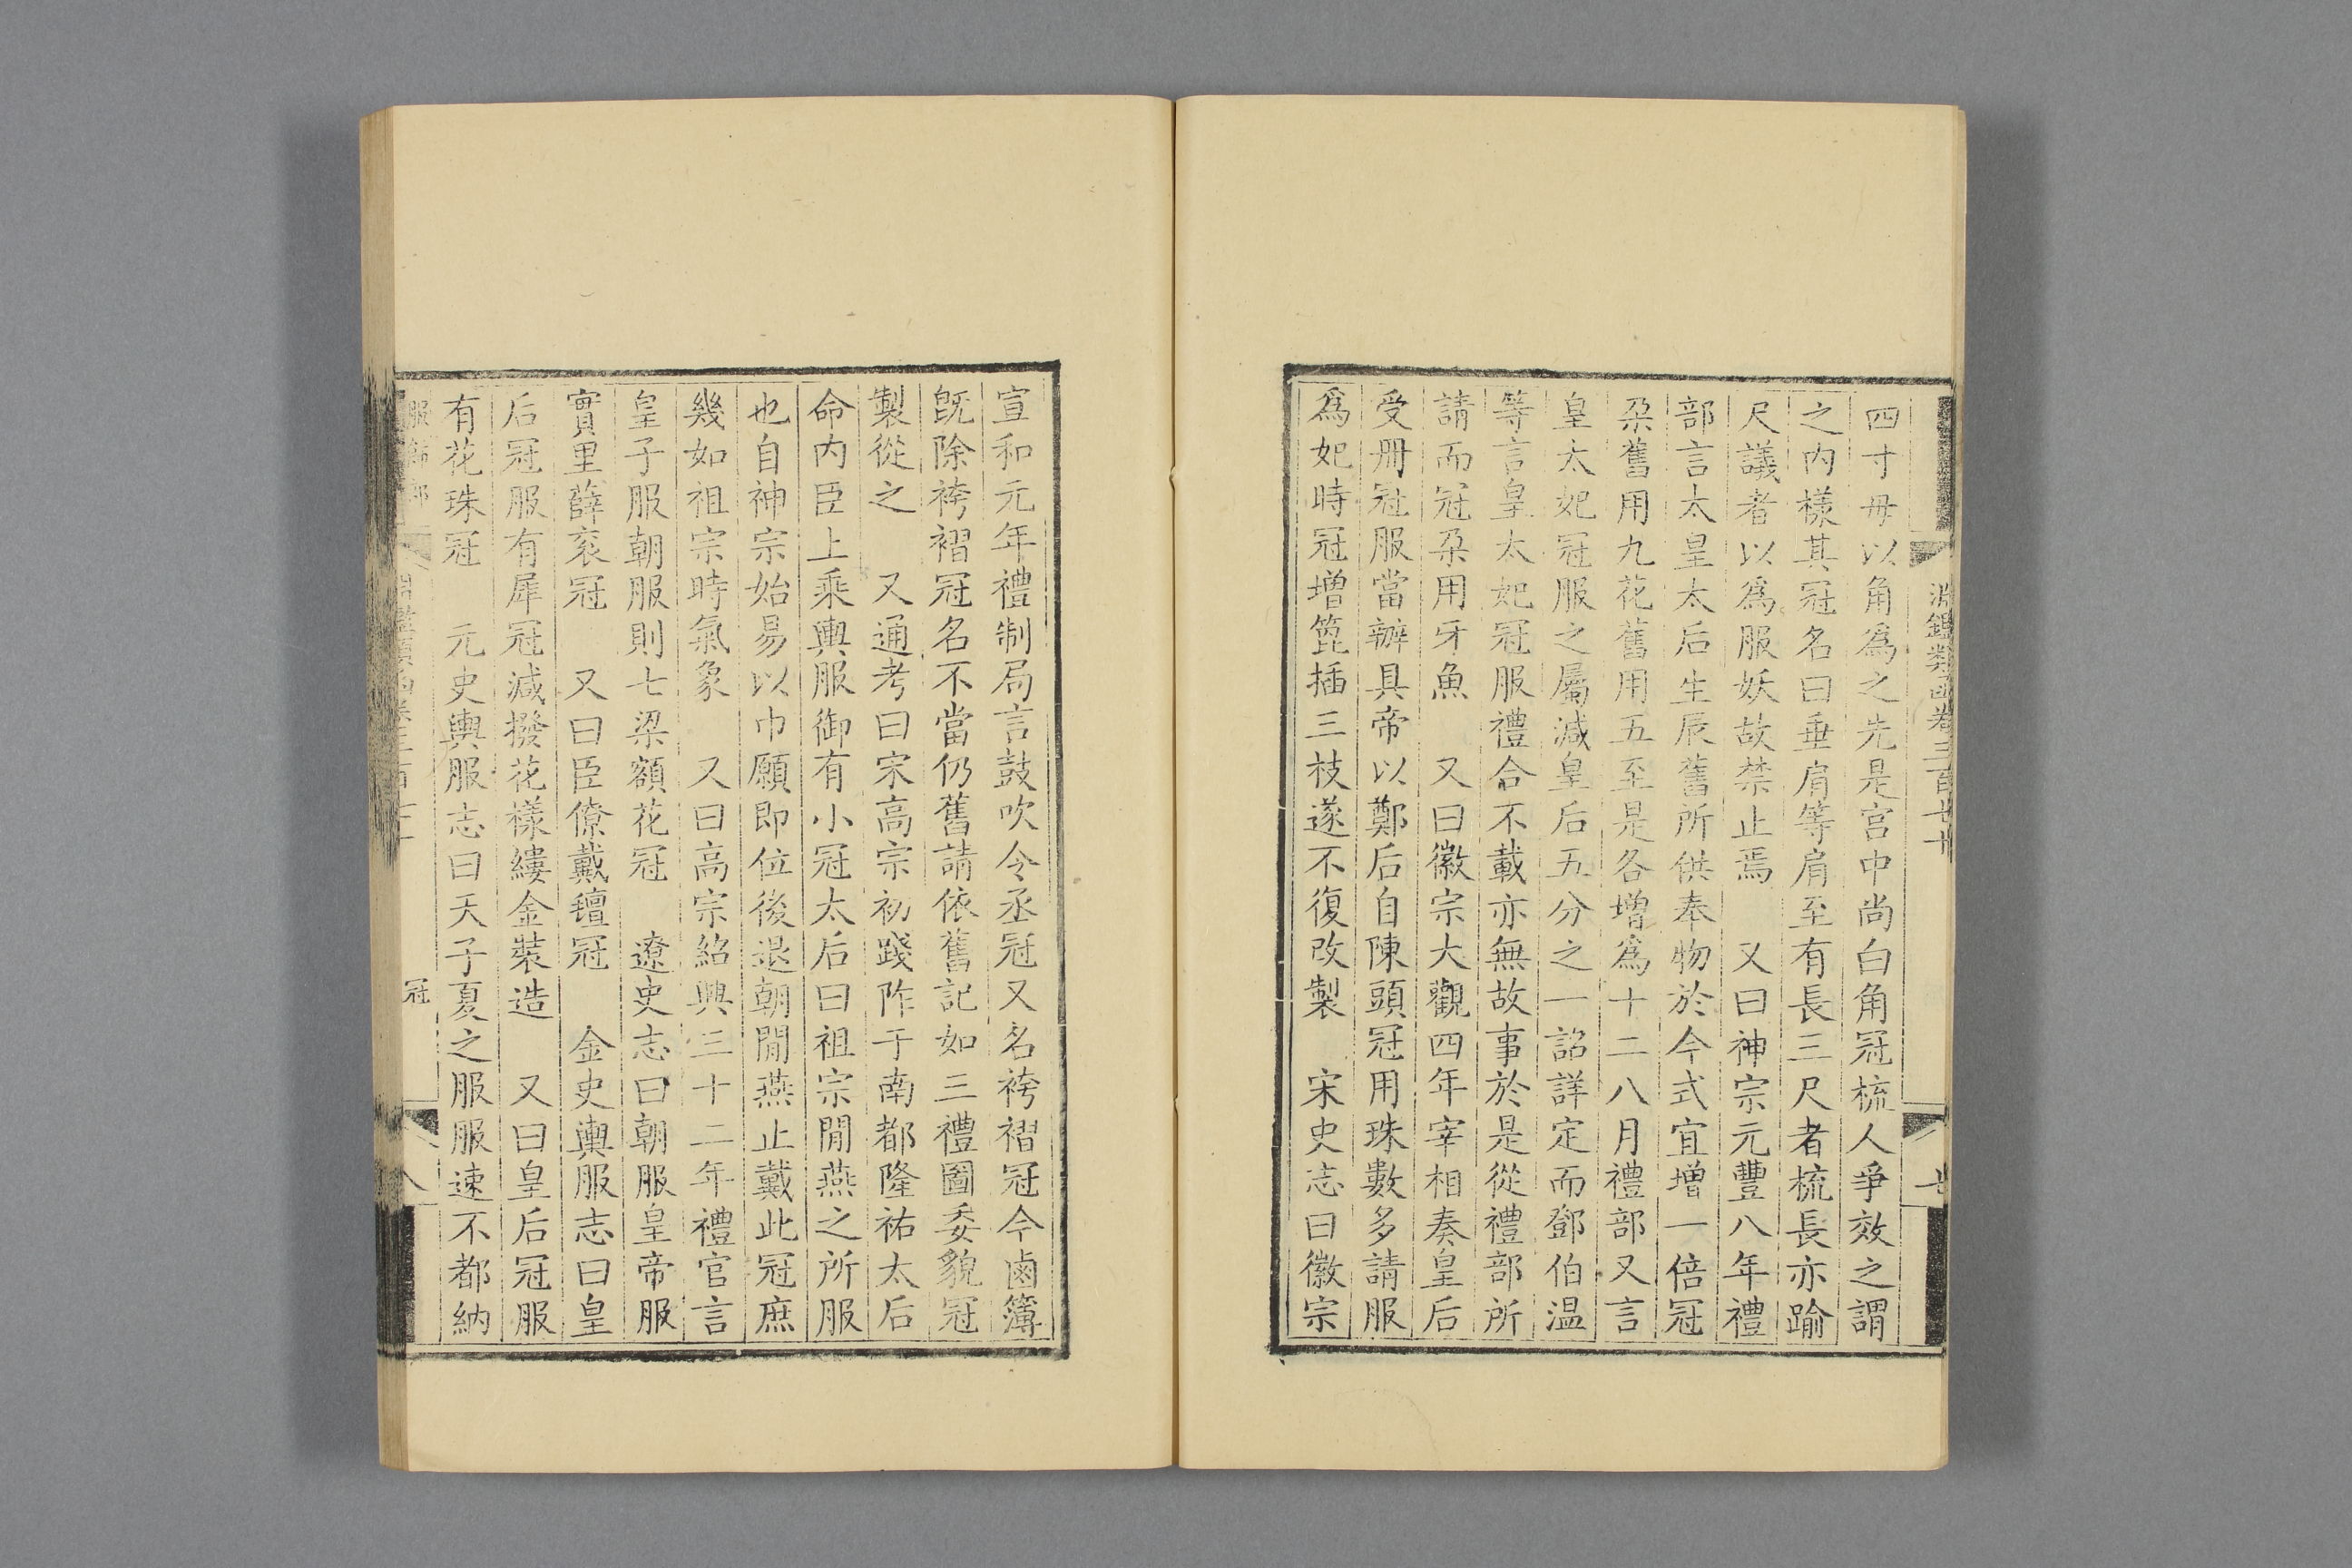 淵鑑類函卷三百七十
四寸毋以角爲之先是宮中尚白角冠梳人爭效之謂
之內樣其冠名曰垂肩等肩至有長三尺者梳長亦踰
尺議者以爲服妖故禁止焉 又曰神宗元豐八年禮
部言太皇太后生辰舊所供奉物於今式宜增一倍冠
朶舊用九花舊用五至是各增爲十二八月禮部又言
皇太妃冠服之屬減皇后五分之一詔詳定而鄧伯温
等言皇太妃冠服禮令不載亦無故事於是從禮部所
請而冠朶用牙魚 又曰徽宗大觀四年宰相奏皇后
受冊冠服當辦具帝以鄭后自陳頭冠用珠數多請服
爲妃時冠增箆插三枝遂不復改製 宋史志曰徽宗
宣和元年禮制局言鼓吹令丞冠又名袴褶冠今鹵簿
旣除袴褶冠名不當仍舊請依舊記如三禮圖委貌冠
製從之 又通考曰宋高宗初踐阼于南都隆祐太后
命内臣上乘輿服御有小冠太后曰祖宗閒燕之所服
也自神宗始易以巾願即位後退朝閒燕止戴此冠庶
幾如祖宗時氣象 又曰高宗紹興三十二年禮官言
皇子服朝服則七梁額花冠 遼史志曰朝服皇帝服
實里薛衮冠 又曰臣僚戴氊冠 金史輿服志曰皇
后冠服有犀冠減撥花樣縷金裝造 又曰皇后冠服
有花珠冠 元史輿服志曰天子夏之服服速不都納
服飾部 冠 八